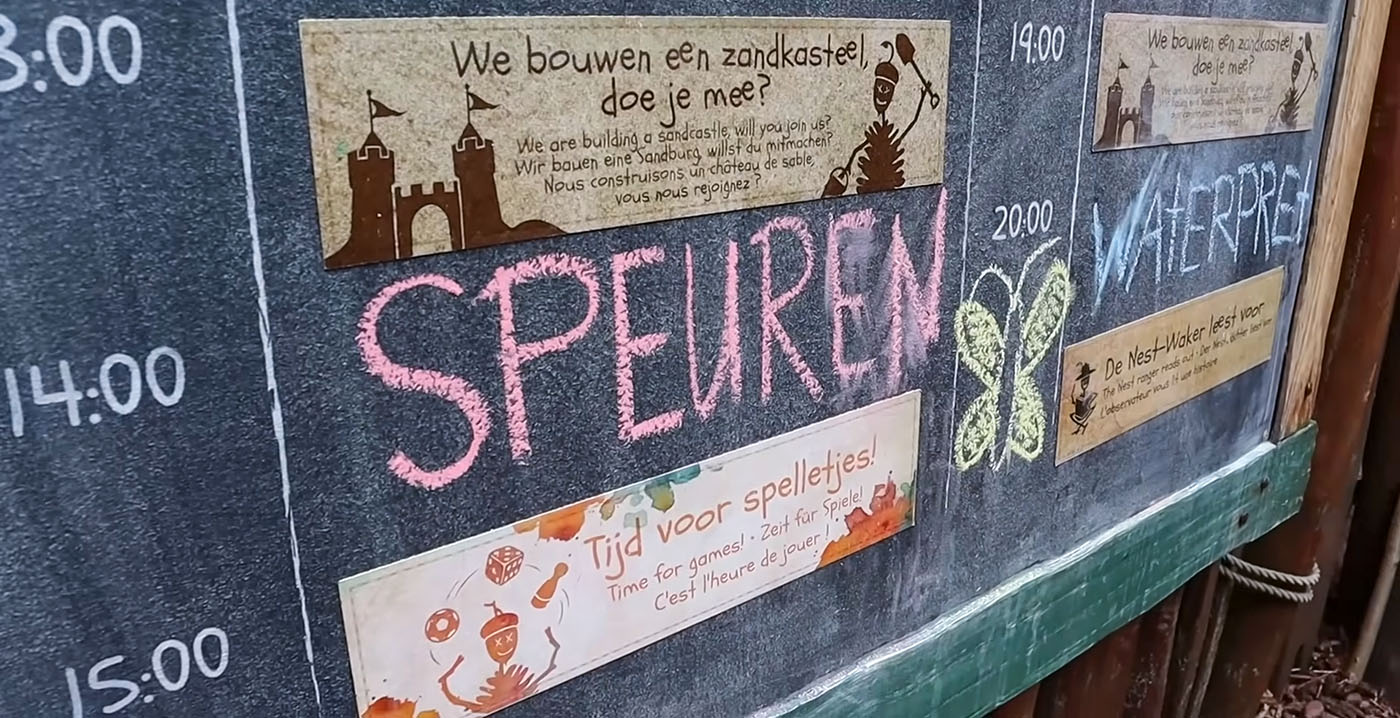 3:00
We bouwen een zandkasteel,
doe je mee?
We are building a sandcastle, will you join us?
Wir bauen eine Sandburg, willst du mitmachen?
Nous construisons un château de sable,
vous nous rejoignez ?
SPEUREN
14:00
Tijd voor spelletjes!
Time for games! · Zeit für Spiele!
C'est l'heure de jouer !
15:00
19:00
We bouwen een zandkasteel,
doe je mee?
WATERPRET
20:00
De Nest-Waker leest voor
The Nest ranger reads out · Der Nest
L'observateur vous lit une histoire